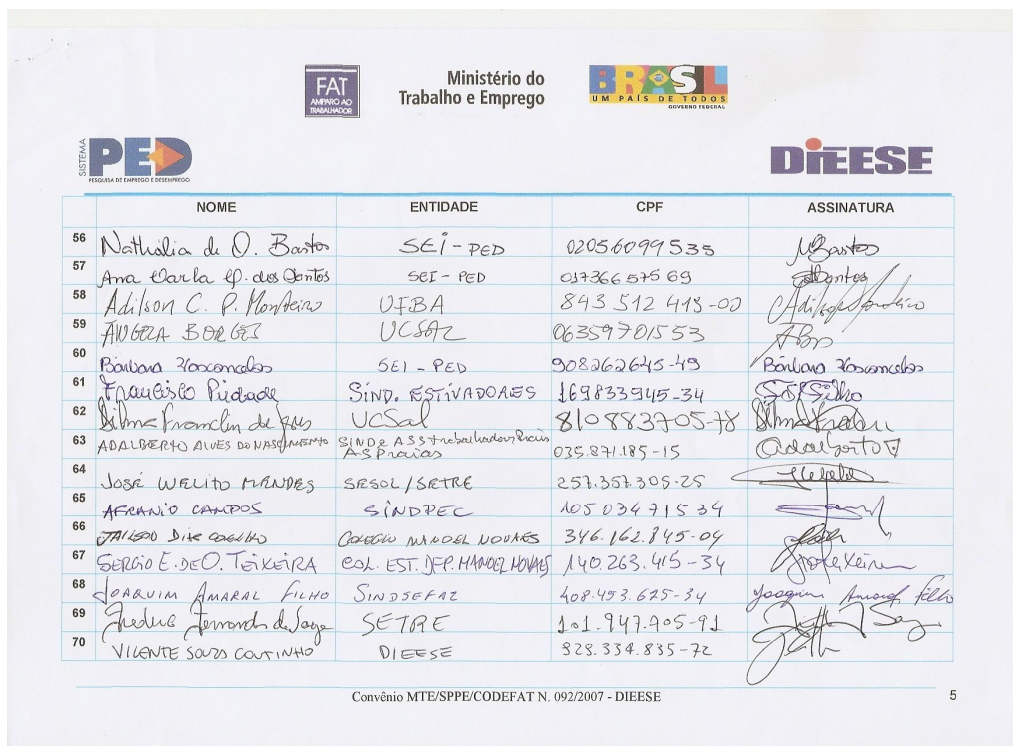 FAT
AMPARO AO
TRABALHADOR
Ministério do
Trabalho e Emprego
BRASIL
UM PAÍS DE TODOS
GOVERNO FEDERAL
SISTEMA
PED
PESQUISA DE EMPREGO E DESEMPREGO
DIEESE
NOME ENTIDADE CPF ASSINATURA
56 Nathália de O. Bastos SEI-PED 02056099535 NBastos
57 Ana Carla dos Santos SEI-PED 01736657569
58 Adilson C. P. Monteiro UFBA 843 512 413-00
59 ÂNGELA BORGES UCSAL 06359701553
60 Bárbara Vasconcelos SEI-PED 908262645-49 Bárbara Vasconcelos
61 Francisco Piedade SIND. ESTIVADORES 169833945-34
62 Dilma Franclin de UCSal 810883705-78
63 ADALBERTO ALVES DO NASCIMENTO SIND
AS Praias 035.871.185-15 Adalberto
64 JOSÉ WELITO MENDES SESOL/SETRE 257.357.305-25
65 AFRANIO CAMPOS SINDPEC 105034715 34
66 COELHO COLEGIO MANOEL NOVAES 346.162.845-04
67 SERGIO E. DE O. TEIXEIRA COL. EST. DEP. MANOEL NOVAES 140.263.415-34
68 JOAQUIM AMARAL FILHO SINDSEFAZ 408.453.625-34 Joaquim Amaral Filho
69 Fernando de SETRE 101.947.705-91
70 VICENTE SOUZA COUTINHO DIEESE 828.334.835-72
Convênio MTE/SPPE/CODEFAT N. 092/2007 - DIEESE 5